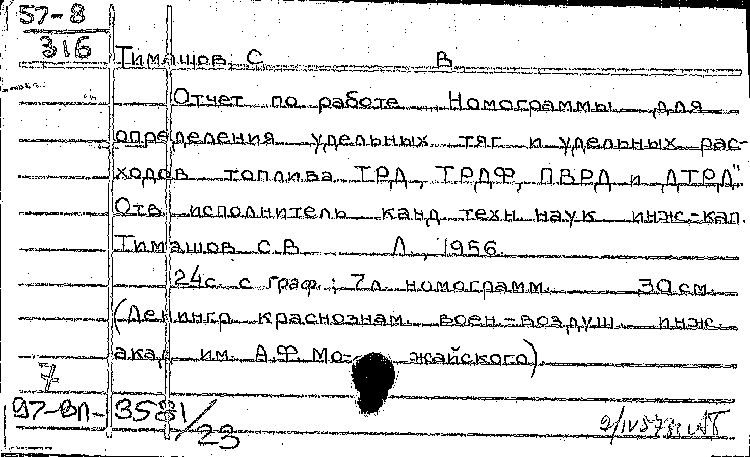 57-8
316
Тимашов С В
Отчет по работе „Номограммы для
определения удельных тяг и удельных рас-
ходов топлива ТРД, ТРДФ, ПВРД и ДТРД"
Отв исполнитель канд техн. наук инж-кап.
Тимашов С.В. Л., 1956.
24с. с граф.; 7л номограмм. 30см.
(Ленингр краснознам. воен-воздуш инж.
акад им. А.Ф. Можайского).
7
97-ВЛ-3581/23